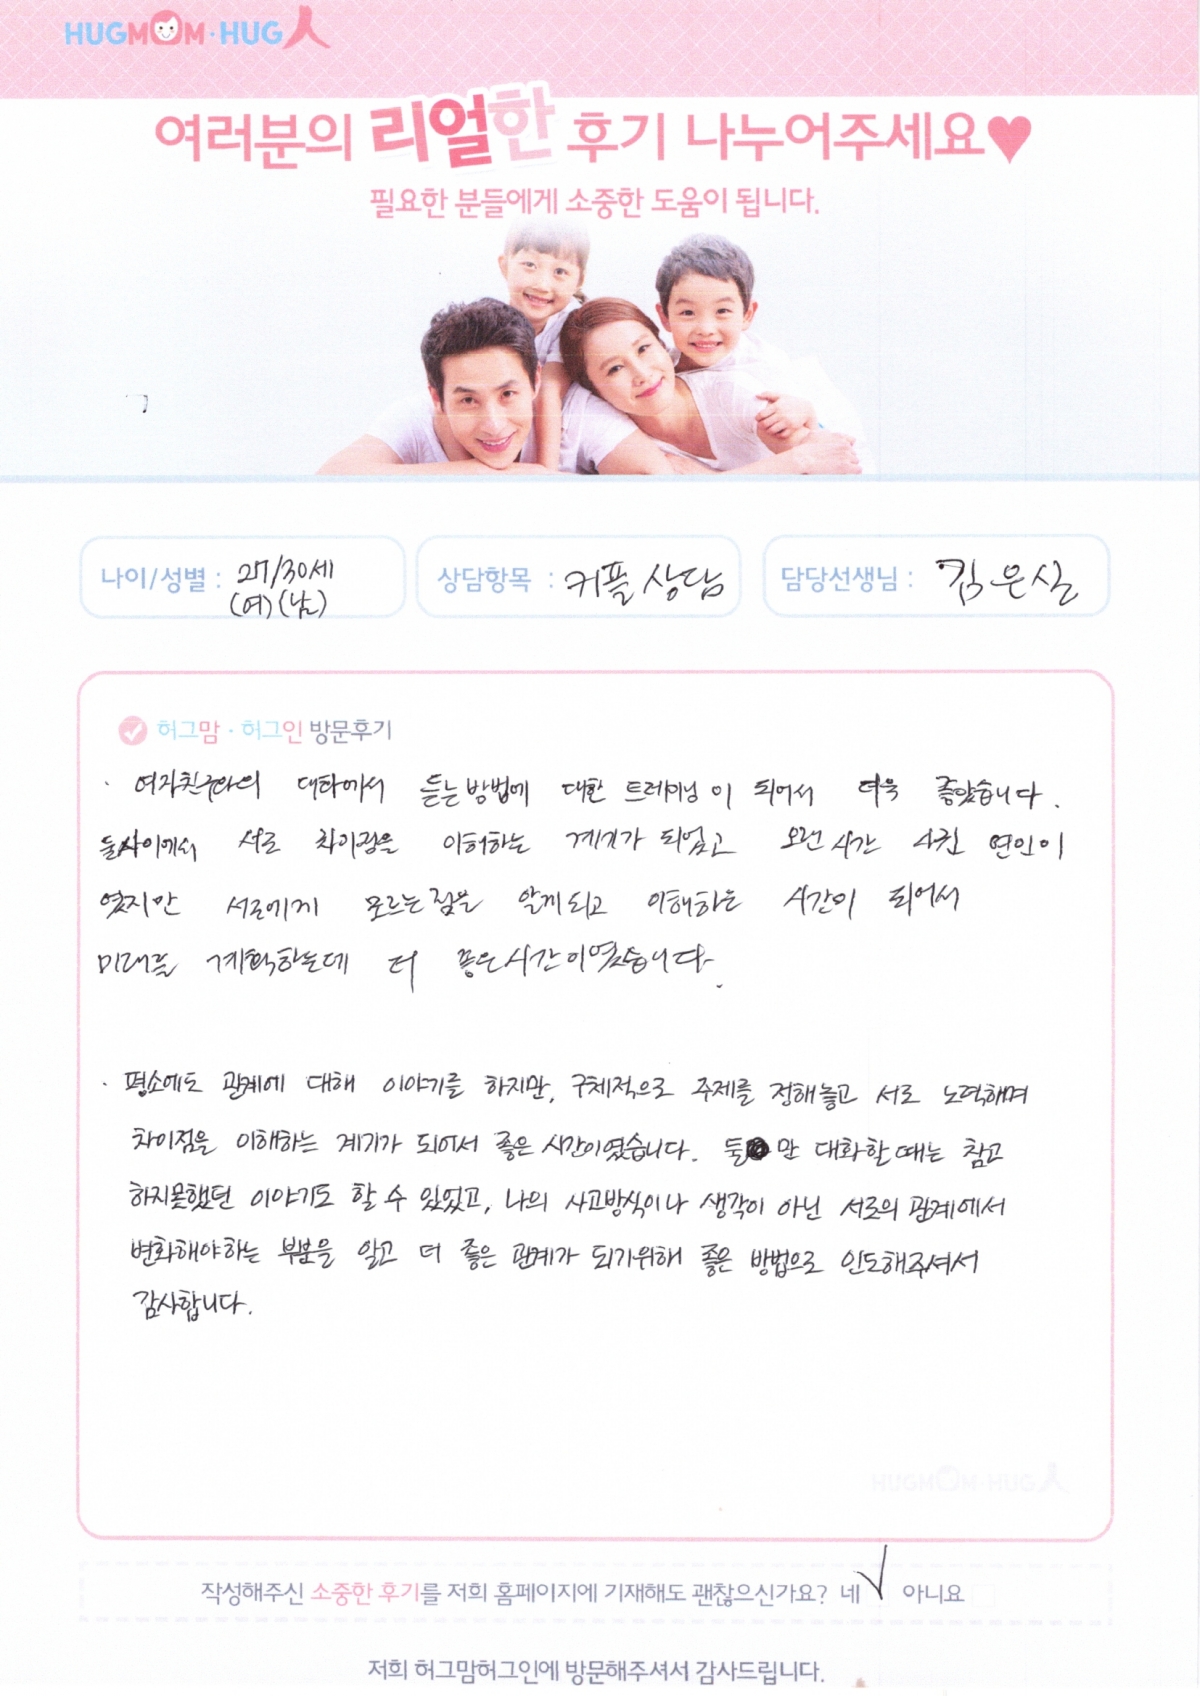 HUGMOM·HUG人
여러분의 리얼한 후기 나누어주세요♥
필요한 분들에게 소중한 도움이 됩니다.
나이/성별 : 27/30세
(여) (남)
상담항목 : 커플상담
담당선생님 : 김은실
허그맘·허그인 방문후기
· 여자친구와의 대화에서 듣는방법에 대한 트레이닝이 되어서 더욱 좋았습니다.
둘사이에서 서로 차이점을 이해하는 계기가 되었고 오랜시간 사귄 연인이
었지만 서로에게 모르는점을 알게되고 이해하는 시간이 되어서
미래를 계획하는데 더 좋은시간이였습니다.
· 평소에도 관계에 대해 이야기를 하지만, 구체적으로 주제를 정해놓고 서로 노력하며
차이점을 이해하는 계기가 되어서 좋은 시간이였습니다. 둘만 대화할때는 참고
하지못했던 이야기도 할 수 있었고, 나의 사고방식이나 생각이 아닌 서로의 관계에서
변화해야하는 부분을 알고 더 좋은 관계가 되기위해 좋은 방법으로 인도해주셔서
감사합니다.
HUGMOM·HUG人
작성해주신 소중한 후기를 저희 홈페이지에 기재해도 괜찮으신가요? 네 ✓ 아니요 □
저희 허그맘허그인에 방문해주셔서 감사드립니다.